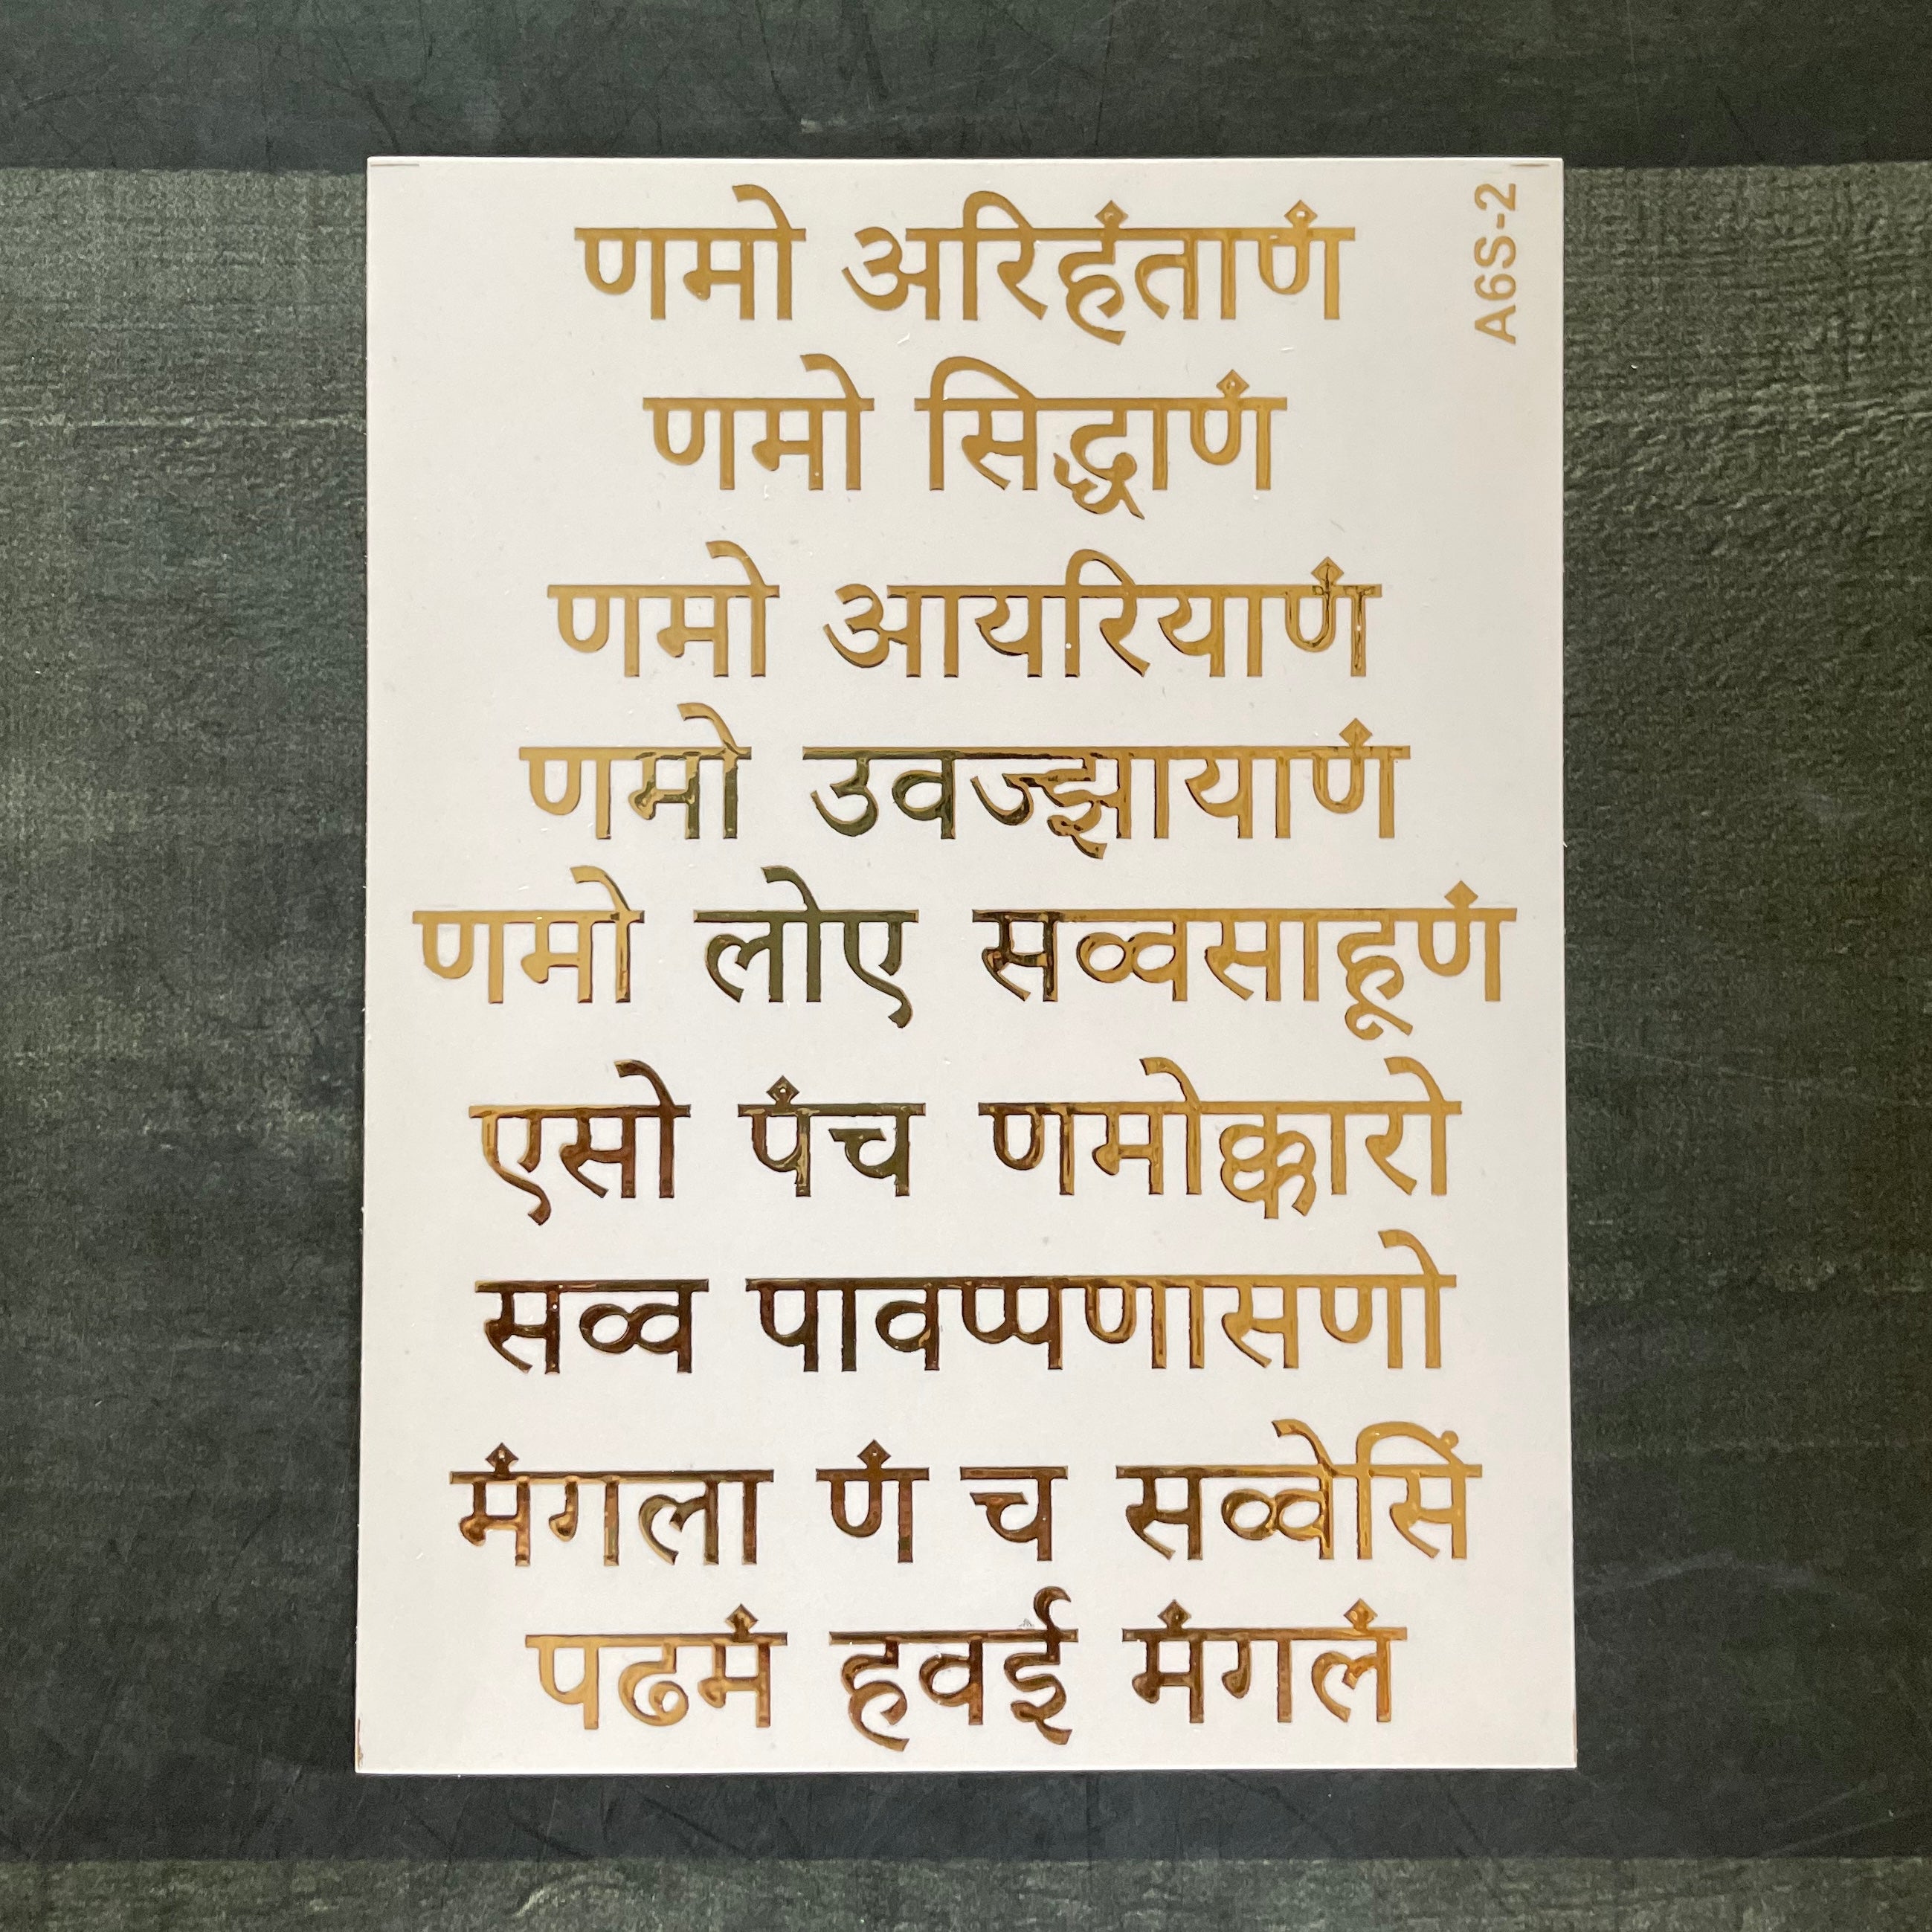 णमो अरिहंताणं
A6S-2
णमो सिद्धाणं
णमो आयरियाणं
णमो उवज्झायाणं
णमो लोए सव्वसाहूणं
एसो पंच णमोक्कारो
सव्व पावप्पणासणो
मंगला णं च सव्वेसिं
पढमं हवई मंगलं